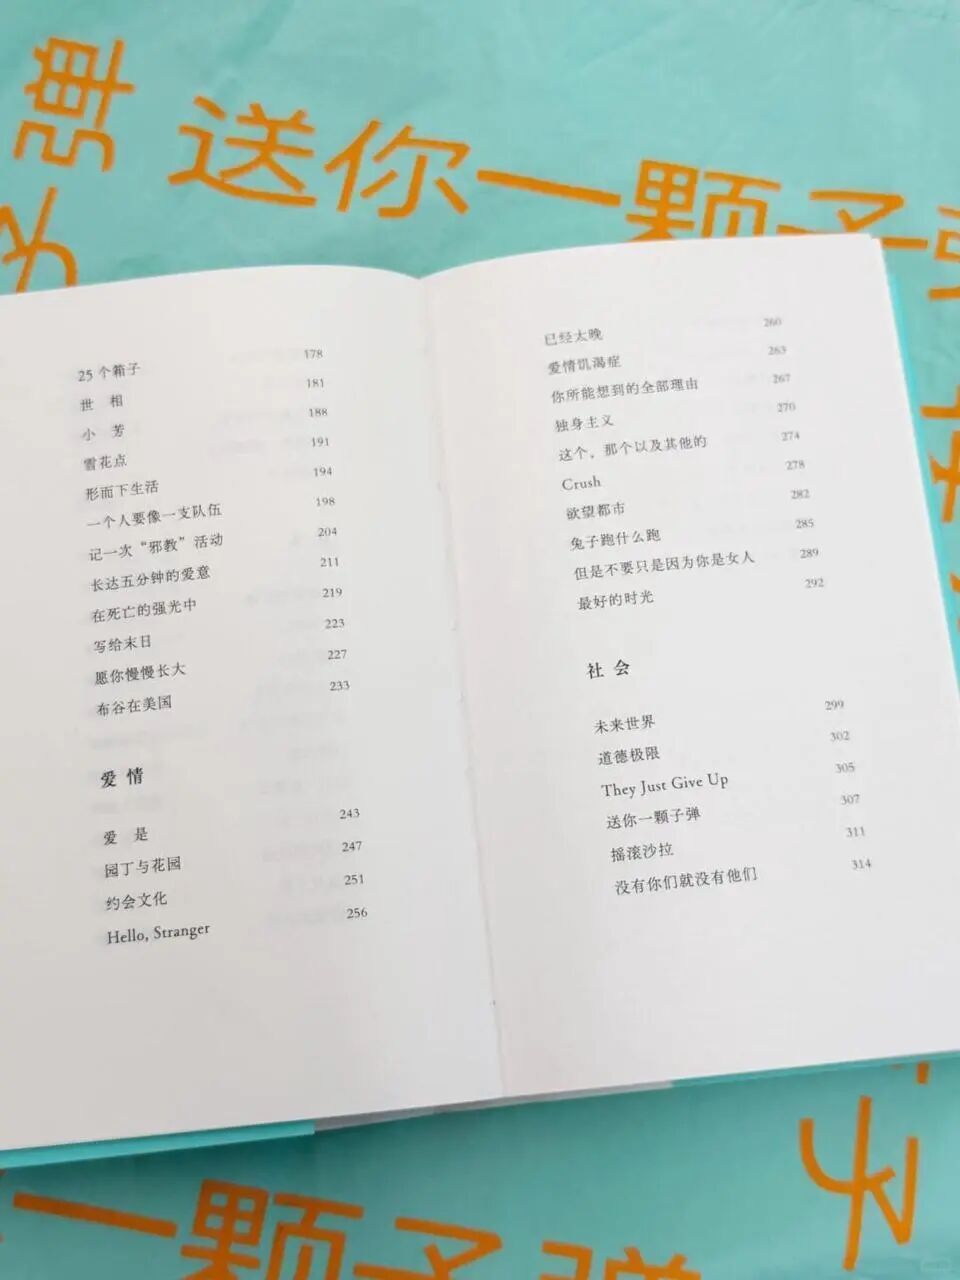 弹
子
送你一颗子弹
25 个箱子 178
世 相 181
小 芳 188
雪花点 191
形而下生活 194
一个人要像一支队伍 198
记一次“邪教”活动 204
长达五分钟的爱意 211
在死亡的强光中 219
写给末日 223
愿你慢慢长大 227
布谷在美国 233
爱 情
爱 是 243
园丁与花园 247
约会文化 251
Hello, Stranger 256
已经太晚 260
爱情饥渴症 263
你所能想到的全部理由 267
独身主义 270
这个，那个以及其他的 274
Crush 278
欲望都市 282
兔子跑什么跑 285
但是不要只是因为你是女人 289
最好的时光 292
社 会
未来世界 299
道德极限 302
They Just Give Up 305
送你一颗子弹 307
摇滚沙拉 311
没有你们就没有他们 314
子
一颗子弹